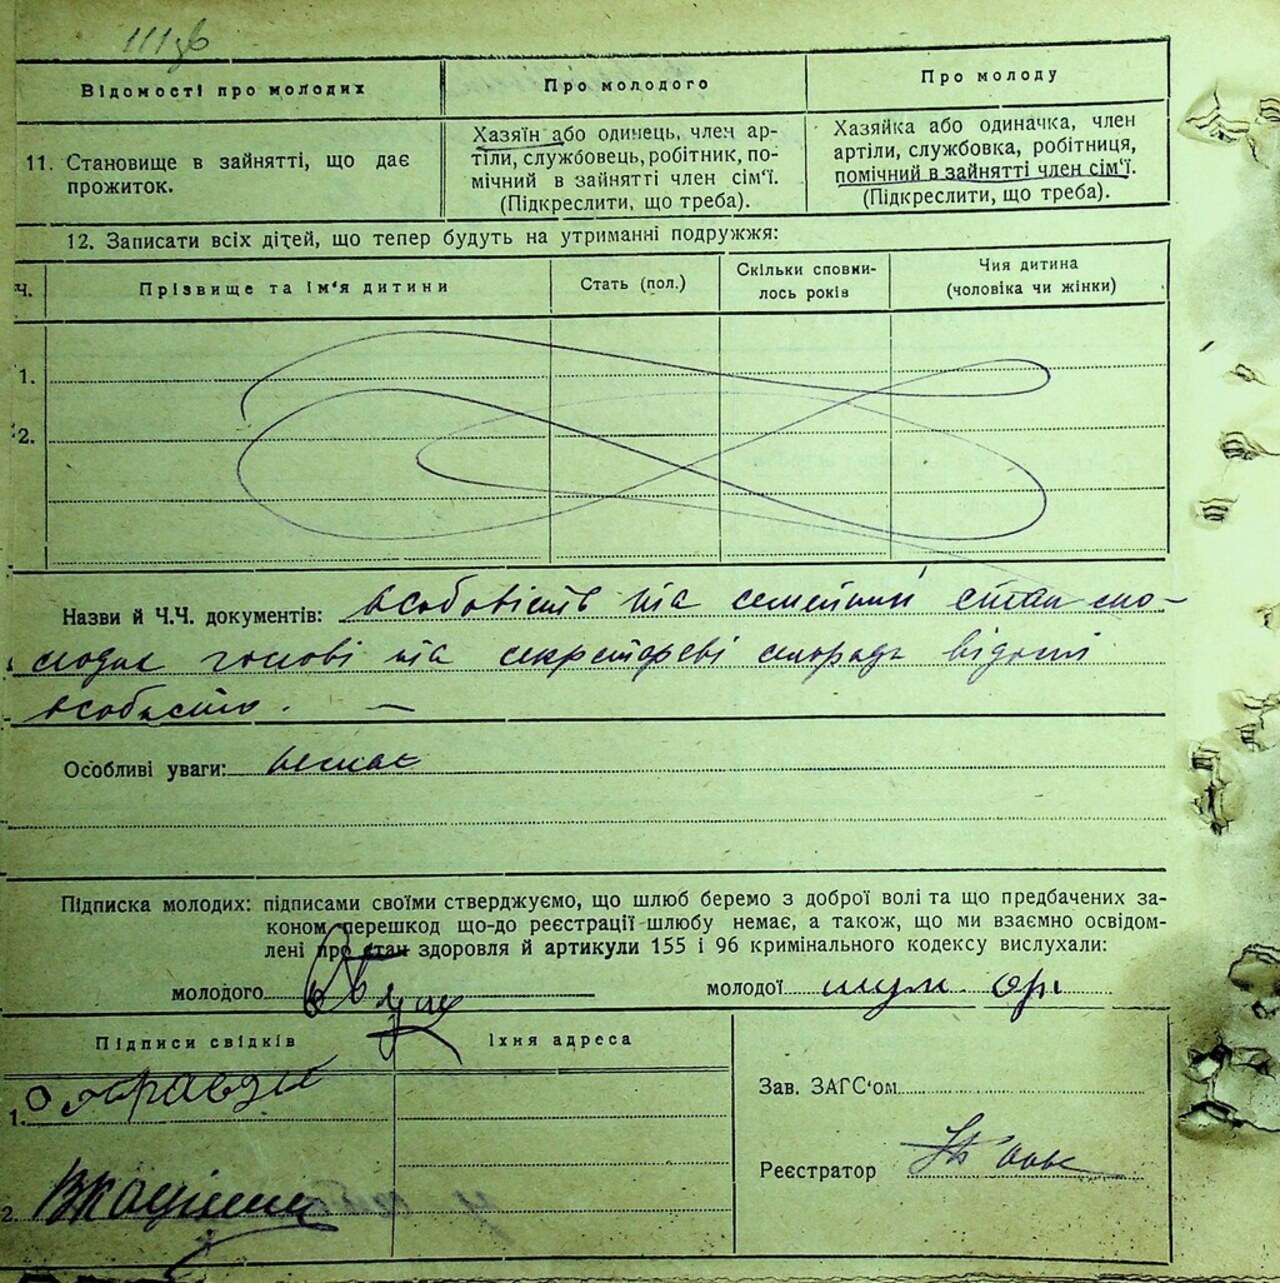 111зв
Відомості про молодих
Про молодого
Про молоду
11. Становище в зайнятті, що дає
прожиток.
Хазяїн або одинець, член ар-
тіли, службовець, робітник, по-
мічний в зайнятті член сім'ї.
(Підкреслити, що треба).
Хазяйка або одиначка, член
артіли, службовка, робітниця,
помічний в зайнятті член сім'ї.
(Підкреслити, що треба).
12. Записати всіх дітей, що тепер будуть на утриманні подружжя:
Ч.
Прізвище та ім'я дитини
Стать (пол.)
Скільки сповни-
лось років
Чия дитина
(чоловіка чи жінки)
1.
2.
Назви й Ч.Ч. документів: особовість та семейний стан мо-
лодих голові та секретареві сільради відомі
особисто. —
Особливі уваги: немає
Підписка молодих: підписами своїми стверджуємо, що шлюб беремо з доброї волі та що предбачених за-
коном перешкод що-до реєстрації шлюбу немає, а також, що ми взаємно освідом-
лені про стан здоровля й артикули 155 і 96 кримінального кодексу вислухали:
молодого
молодої
Підписи свідків
Їхня адреса
1.
2.
Зав. ЗАГС'ом
Реєстратор